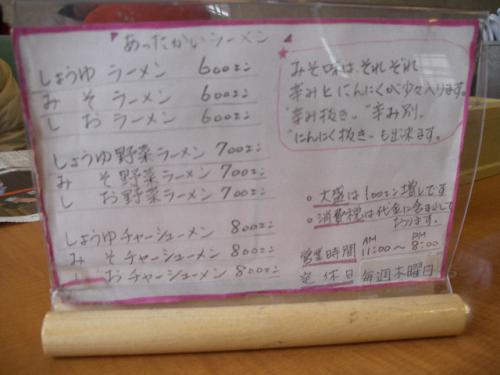 あったかいラーメン
しょうゆ ラーメン 600エン
み そ ラーメン 600エン
し お ラーメン 600エン
しょうゆ野菜ラーメン 700エン
み そ野菜ラーメン 700エン
し お野菜ラーメン 700エン
しょうゆチャーシューメン 800エン
み そチャーシューメン 800エン
し おチャーシューメン 800エン
★
みそ味は、それぞれ
辛みとにんにくが少々入ります。
"辛み抜き" "辛み別"
"にんにく抜き"も出来ます。
○大盛は100エン増しです
○消費税は代金に含まして
おります。
営業時間 AM 11:00～PM 8:00
定休日 毎週木曜日